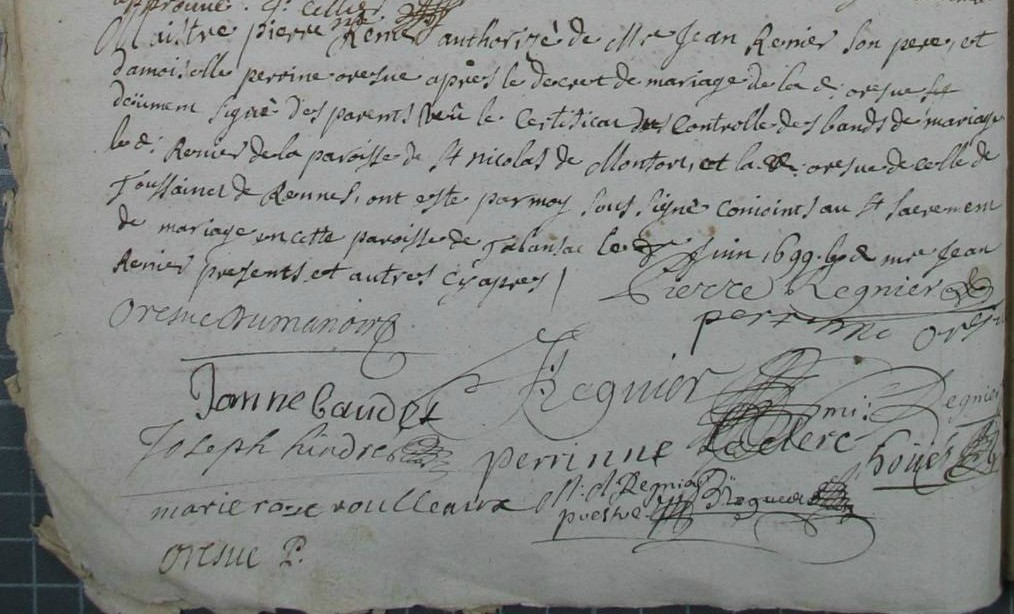 approuvé
Maistre pierre Renier authorizé de Mre Jean Renier son pere, et
damoiselle perrine oresue apres le decret de mariage de la d: oresue
deüment signé des parents veü le certificat du controlle des bands de mariage
le d: Renier de la paroisse de st nicolas de Montfort, et la d: oresue de celle de
Toussainct de Rennes, ont esté par moy soussigné conjoincts au st sacrement
de mariage en cette paroisse de Talansac le Juin 1699. mre Jean
Renier presents et autres cy apres
Pierre Regnier
perrinne Oresu
Oresue Dumanoir
Regnier
Janne baudet
Regnier
Joseph hindré
perrinne Leclerc
hoüé
marie roze roulleaux
Regnier
prestre
Oresue P.